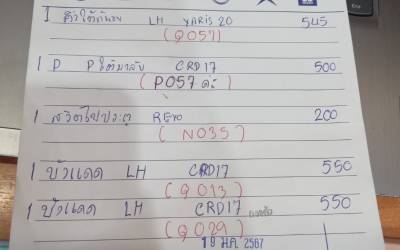 1 คิ้วใต้กันชน LH YARIS 20 545
(Q057)
1 P P ใต้มาลัย CRD17 500
(P057 ค่ะ)
1 สวิตไฟประตู REvo 200
(N035)
1 บัวแดด LH CRD17 550
(Q013)
1 บัวแดด LH CRD17 550
(Q029)
19 ม.ค. 2567